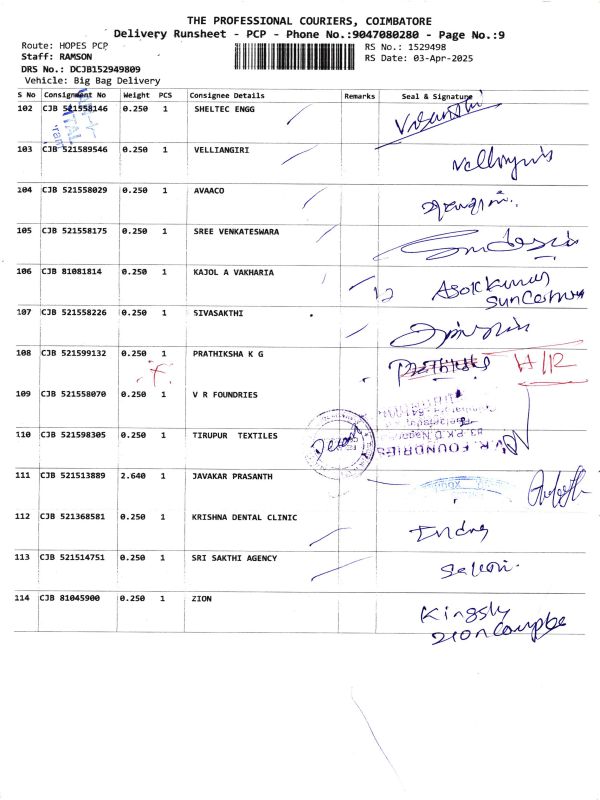 THE PROFESSIONAL COURIERS, COIMBATORE
Delivery Runsheet - PCP - Phone No.:9047080280 - Page No.:9
Route: HOPES PCP
RS No.: 1529498
Staff: RAMSON
RS Date: 03-Apr-2025
DRS No.: DCJB152949809
Vehicle: Big Bag Delivery
S No Consignment No Weight PCS Consignee Details Remarks Seal & Signature
102 CJB 521558146 0.250 1 SHELTEC ENGG
103 CJB 521589546 0.250 1 VELLIANGIRI
104 CJB 521558029 0.250 1 AVAACO
105 CJB 521558175 0.250 1 SREE VENKATESWARA
106 CJB 81081814 0.250 1 KAJOL A VAKHARIA 12 Asokkumar
107 CJB 521558226 0.250 1 SIVASAKTHI
108 CJB 521599132 0.250 1 PRATHIKSHA K G H/R
F.
109 CJB 521558070 0.250 1 V R FOUNDRIES
110 CJB 521598305 0.250 1 TIRUPUR TEXTILES V.R. FOUNDRIES
111 CJB 521513889 2.640 1 JAVAKAR PRASANTH
112 CJB 521368581 0.250 1 KRISHNA DENTAL CLINIC
113 CJB 521514751 0.250 1 SRI SAKTHI AGENCY
114 CJB 81045900 0.250 1 ZION Kingsly